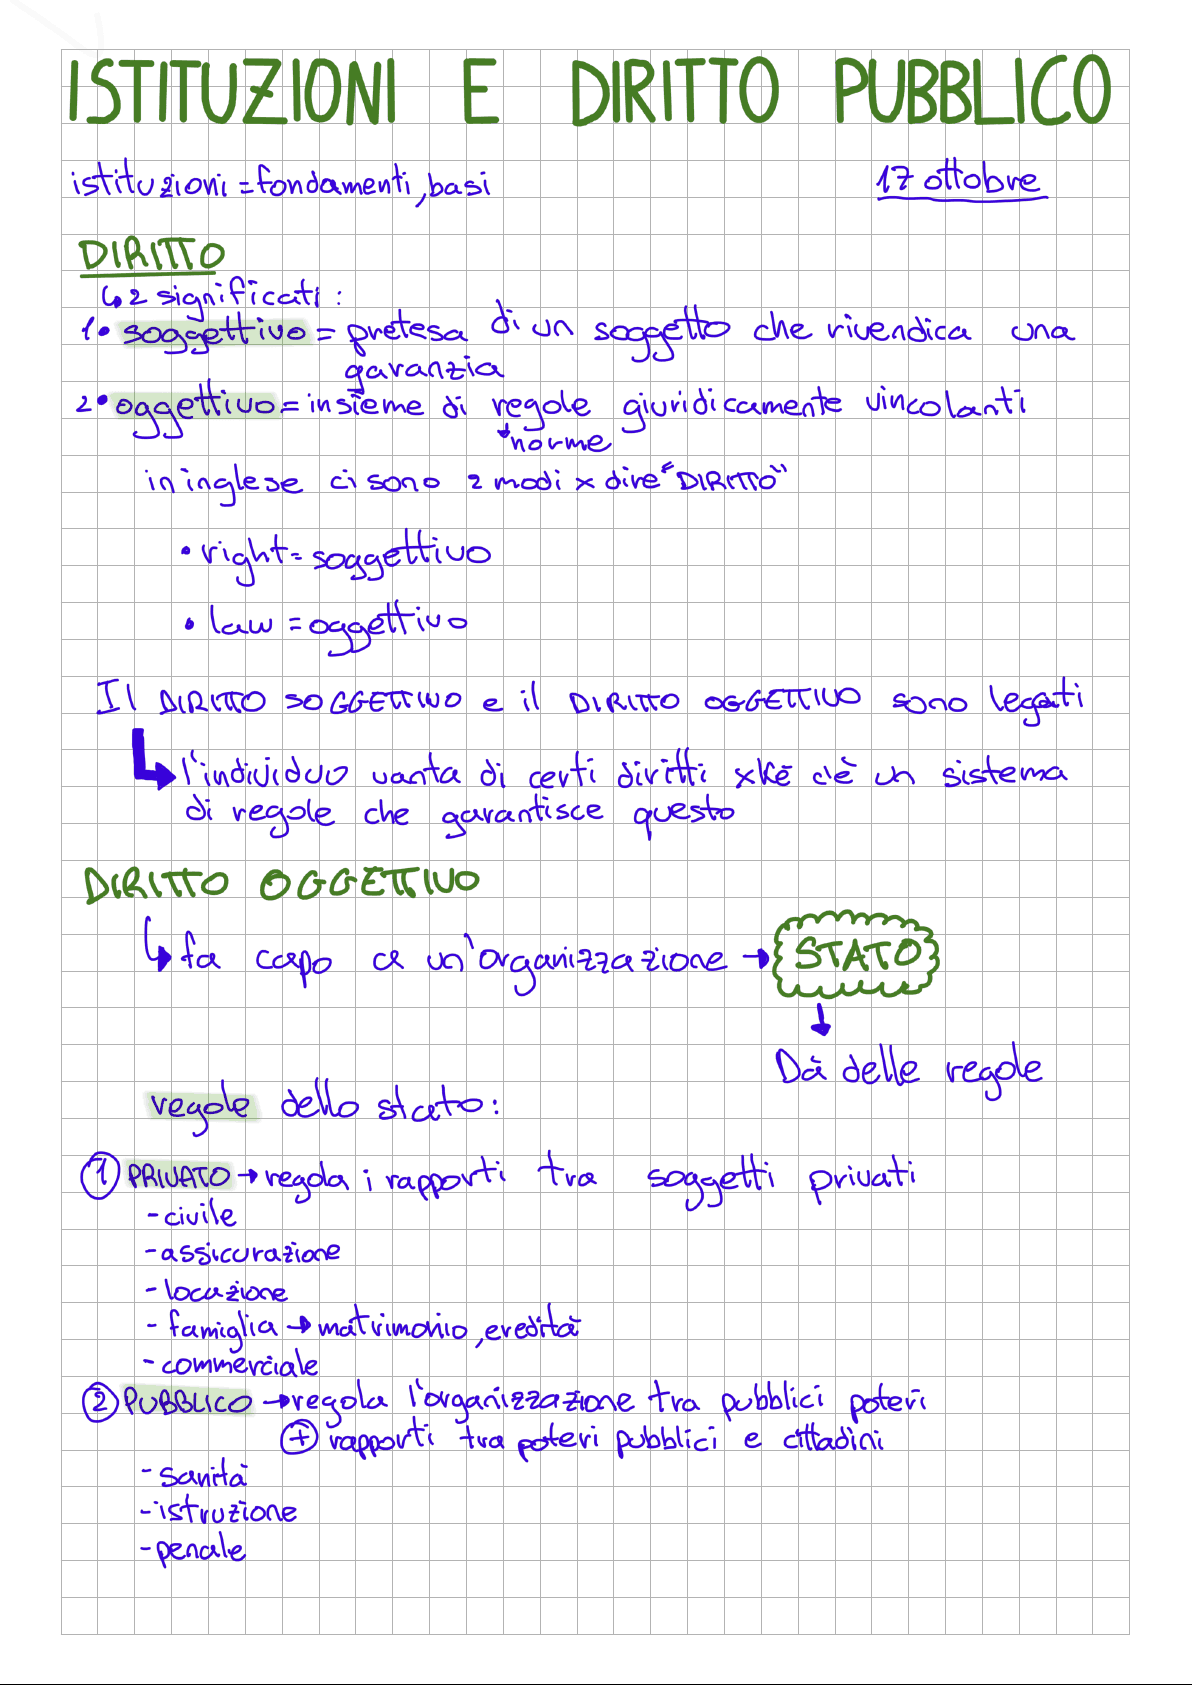 ISTITUZIONI E DIRITTO PUBBLICO
istituzioni = fondamenti, basi
17 ottobre
DIRITTO
↳ 2 significati:
1• soggettivo = pretesa di un soggetto che rivendica una
garanzia
2• oggettivo = insieme di regole giuridicamente vincolanti
↓ norme
in inglese ci sono 2 modi x dire "DIRITTO"
• right = soggettivo
• law = oggettivo
Il DIRITTO SOGGETTIVO e il DIRITTO OGGETTIVO sono legati
↳ l'individuo vanta di certi diritti xkè c'è un sistema
di regole che garantisce questo
DIRITTO OGGETTIVO
↳ fa capo a un'organizzazione → STATO
↓
Dà delle regole
regole dello stato:
① PRIVATO → regola i rapporti tra soggetti privati
- civile
- assicurazione
- locazione
- famiglia → matrimonio, eredità
- commerciale
② PUBBLICO → regola l'organizzazione tra pubblici poteri
⊕ rapporti tra poteri pubblici e cittadini
- sanità
- istruzione
- penale